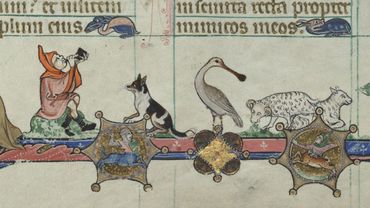 mini: et uisitem
plum eius
in semita recta propter
inimicos meos.